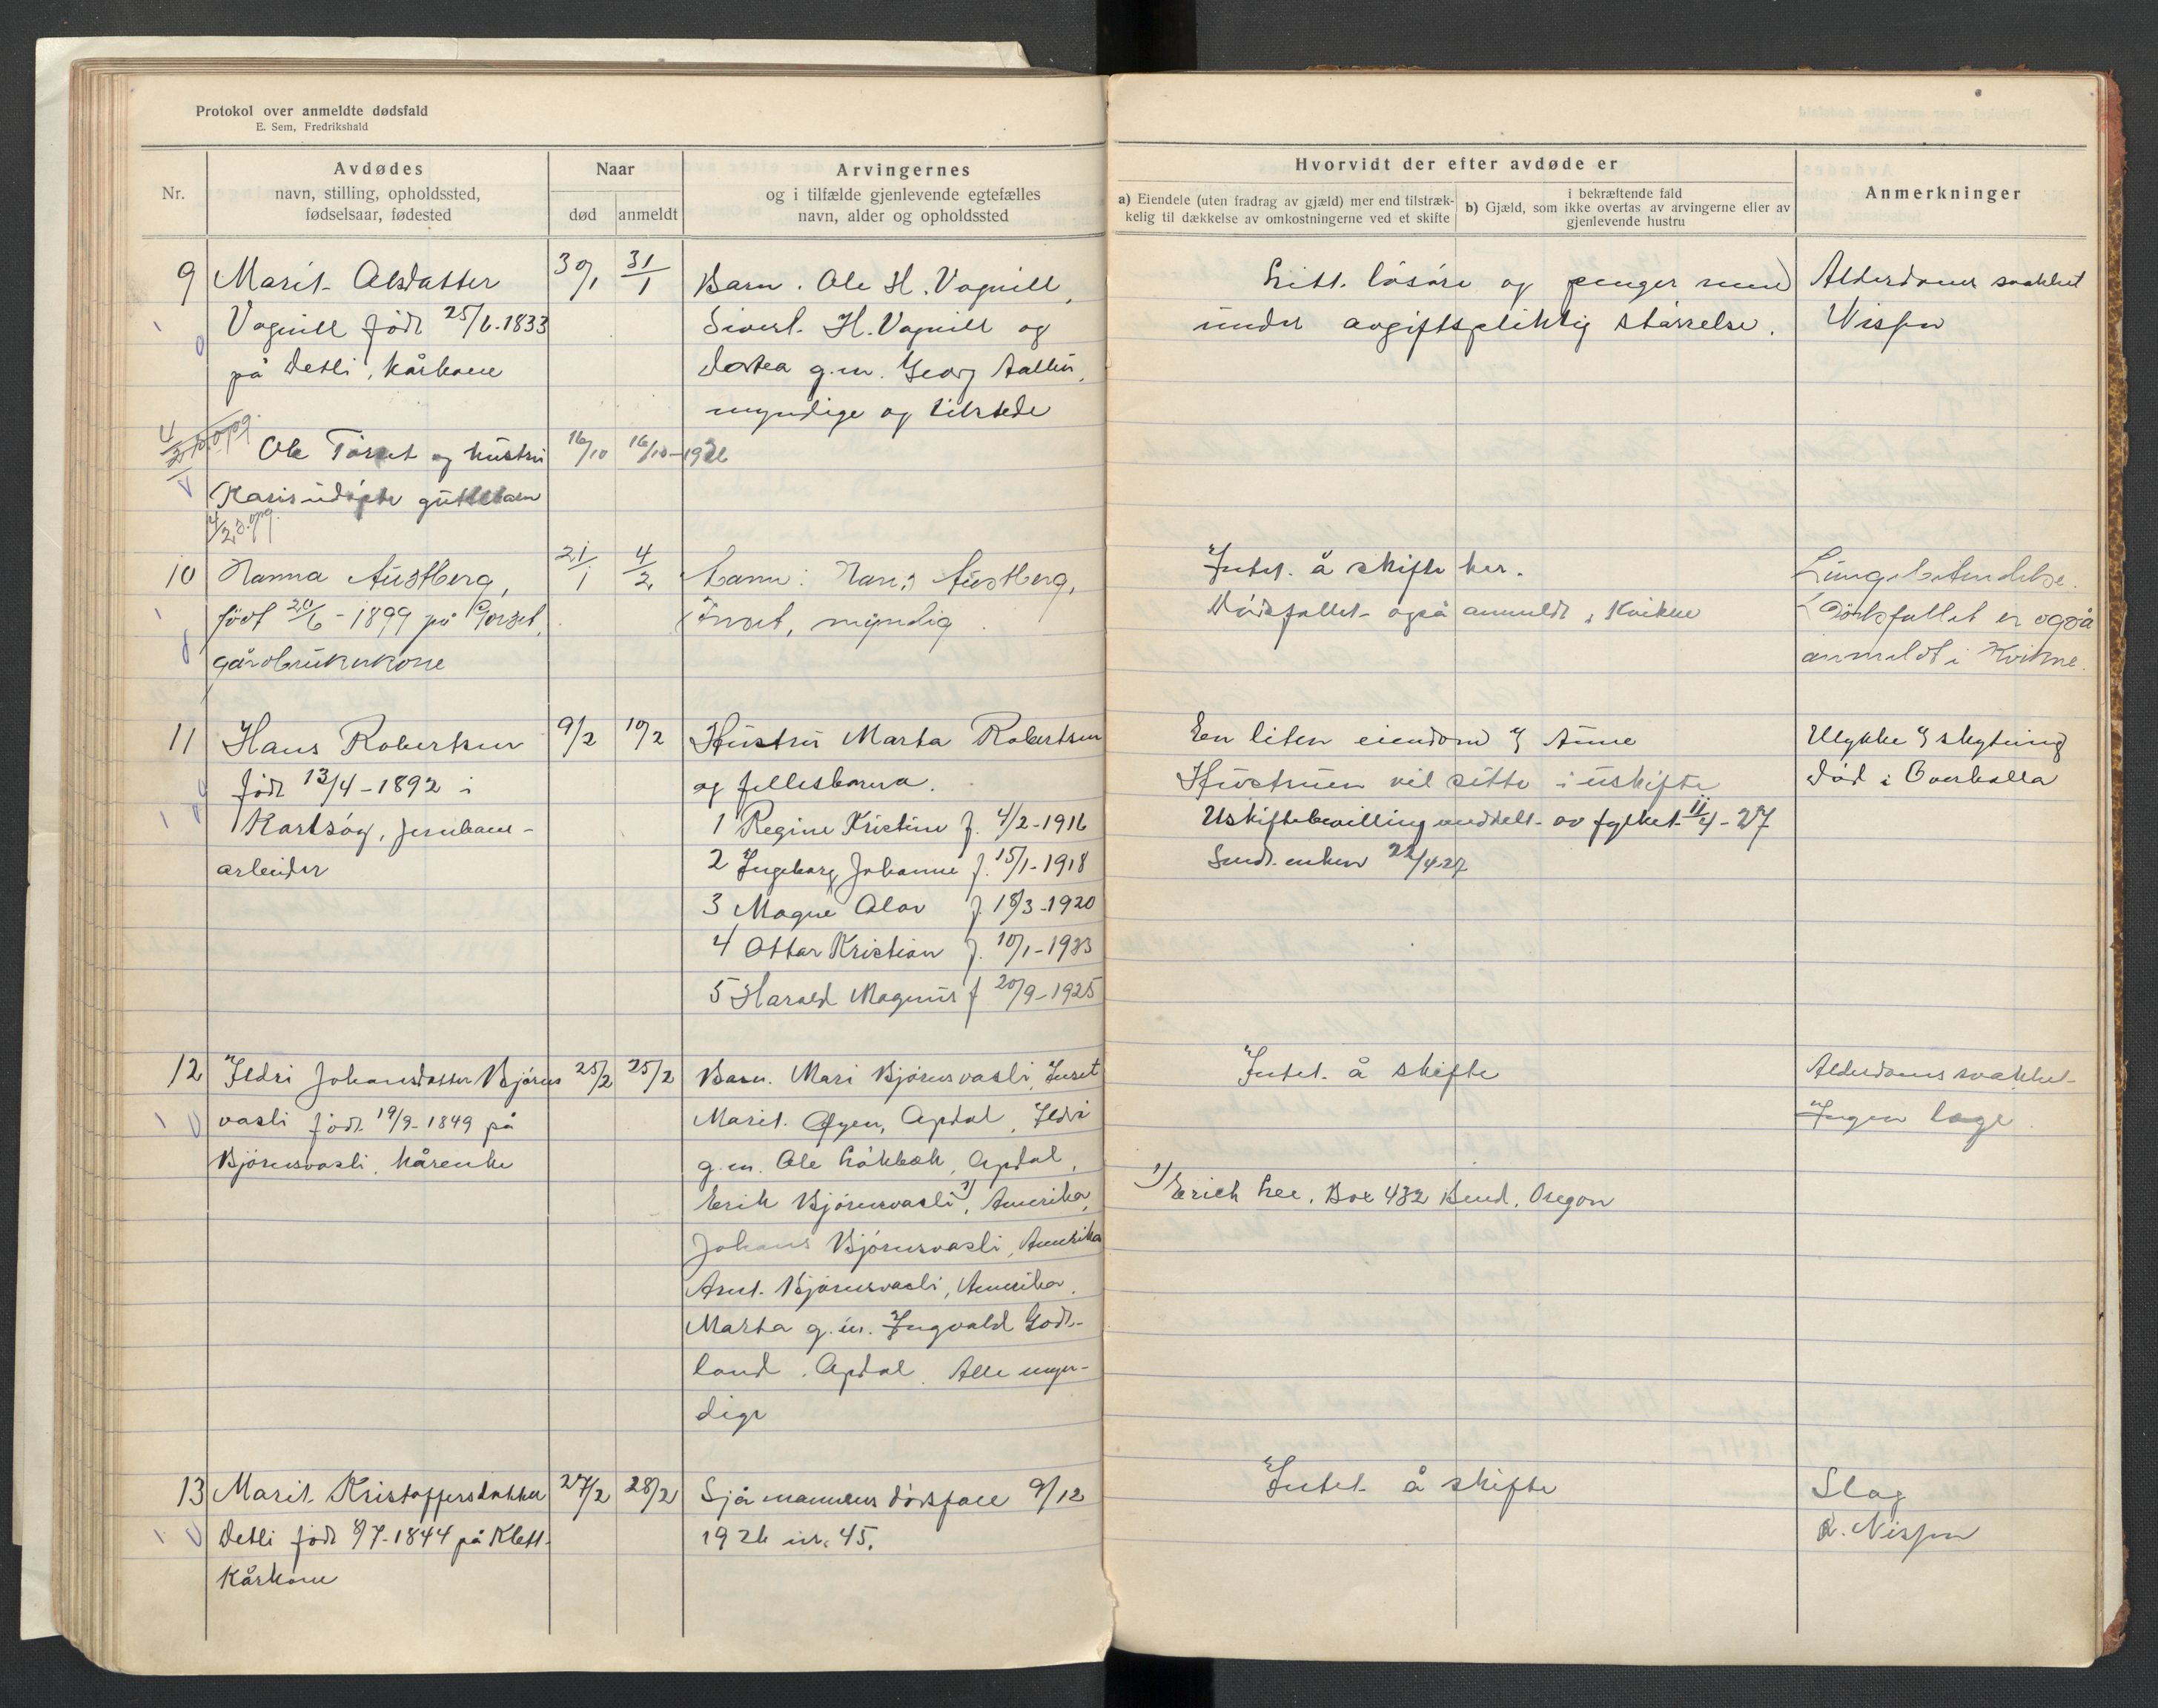 Protokol over anmeldte dødsfald
E. Sem, Fredrikshald
Nr.
Avdødes
navn, stilling, opholdssted,
fødselsaar, fødested
Naar
død
anmeldt
Arvingernes
og i tilfælde gjenlevende egtefælles
navn, alder og opholdssted
Hvorvidt der efter avdøde er
a) Eiendele (uten fradrag av gjæld) mer end tilstræk-
kelig til dækkelse av omkostningerne ved et skifte
i bekræftende fald
b) Gjæld, som ikke overtas av arvingerne eller av
gjenlevende hustru
Anmerkninger
9
Marit Olsdatter
Vognill född 25/6-1833
på Detli, kårkone
30/1
31/1
Barn. Ole H. Vognill,
Sivert H. Vognill og
Dortea g.m. Georg Aallen,
myndige og tilstede
Litt lösöre og penger
under avgiftspliktig störrelse.
Alderdoms svakhet
Nissen
Ole Törset og hustru
Karis udöpte guttebarn
16/10
16/10-1926
4/2 d. opg.
10
Hanna Austberg,
född 20/6-1899 på Gorset,
gårdbrukerkone
21/1
4/2
Mann: Hans Austberg,
Innset, myndig.
Intet å skifte her.
Dödsfallet også anmeldt i Kvikne
Lungebetendelse.
Dödsfallet er også
anmeldt i Kvikne.
11
Hans Robertsen
född 13/4-1892 i
Karlsöy, jernbane-
arbeider
9/2
10/2
Hustru Marta Robertsen
og fellesbarna.
1 Regine Kristine f. 4/2-1916
2 Ingeborg Johanne f. 15/1-1918
3 Magne Olav f. 18/3-1920
4 Ottar Kristian f. 10/1-1923
5 Harald Magnus f 20/9-1925
En liten eiendom i Aune
Hustruen vil sitte i uskifte
Uskiftebevilling meddelt av fylket 11/4-27
Sendt enken 22/4-27
Ulykke i skytning
död i Overhalla
12
Ildri Johansdatter Björns
vasli född 19/9-1849 på
Björnsvasli, kårenke
25/2
25/2
Barn. Mari Björnsvasli, Innset
Marit Øyen, Opdal, Ildri
g.m. Ole Lökbæk, Opdal,
Erik Björnsvasli 1), Amerika,
Johans Björnsvasli, Amerika
Arnt Björnsvasli, Amerika.
Marta g.m. Ingvald God-
land, Opdal. Alle myn-
dige
Intet å skifte
1) Erich Lee, Box 432 Bend, Oregon
Alderdoms svakhet
Ingen læge.
13
Marit Kristoffersdatter
Detli född 8/7-1844 på Klett
Kårkone
27/2
28/2
Sjå mannens dödsfall 9/12
1926 nr. 45.
Intet å skifte
Slag
R. Nissen